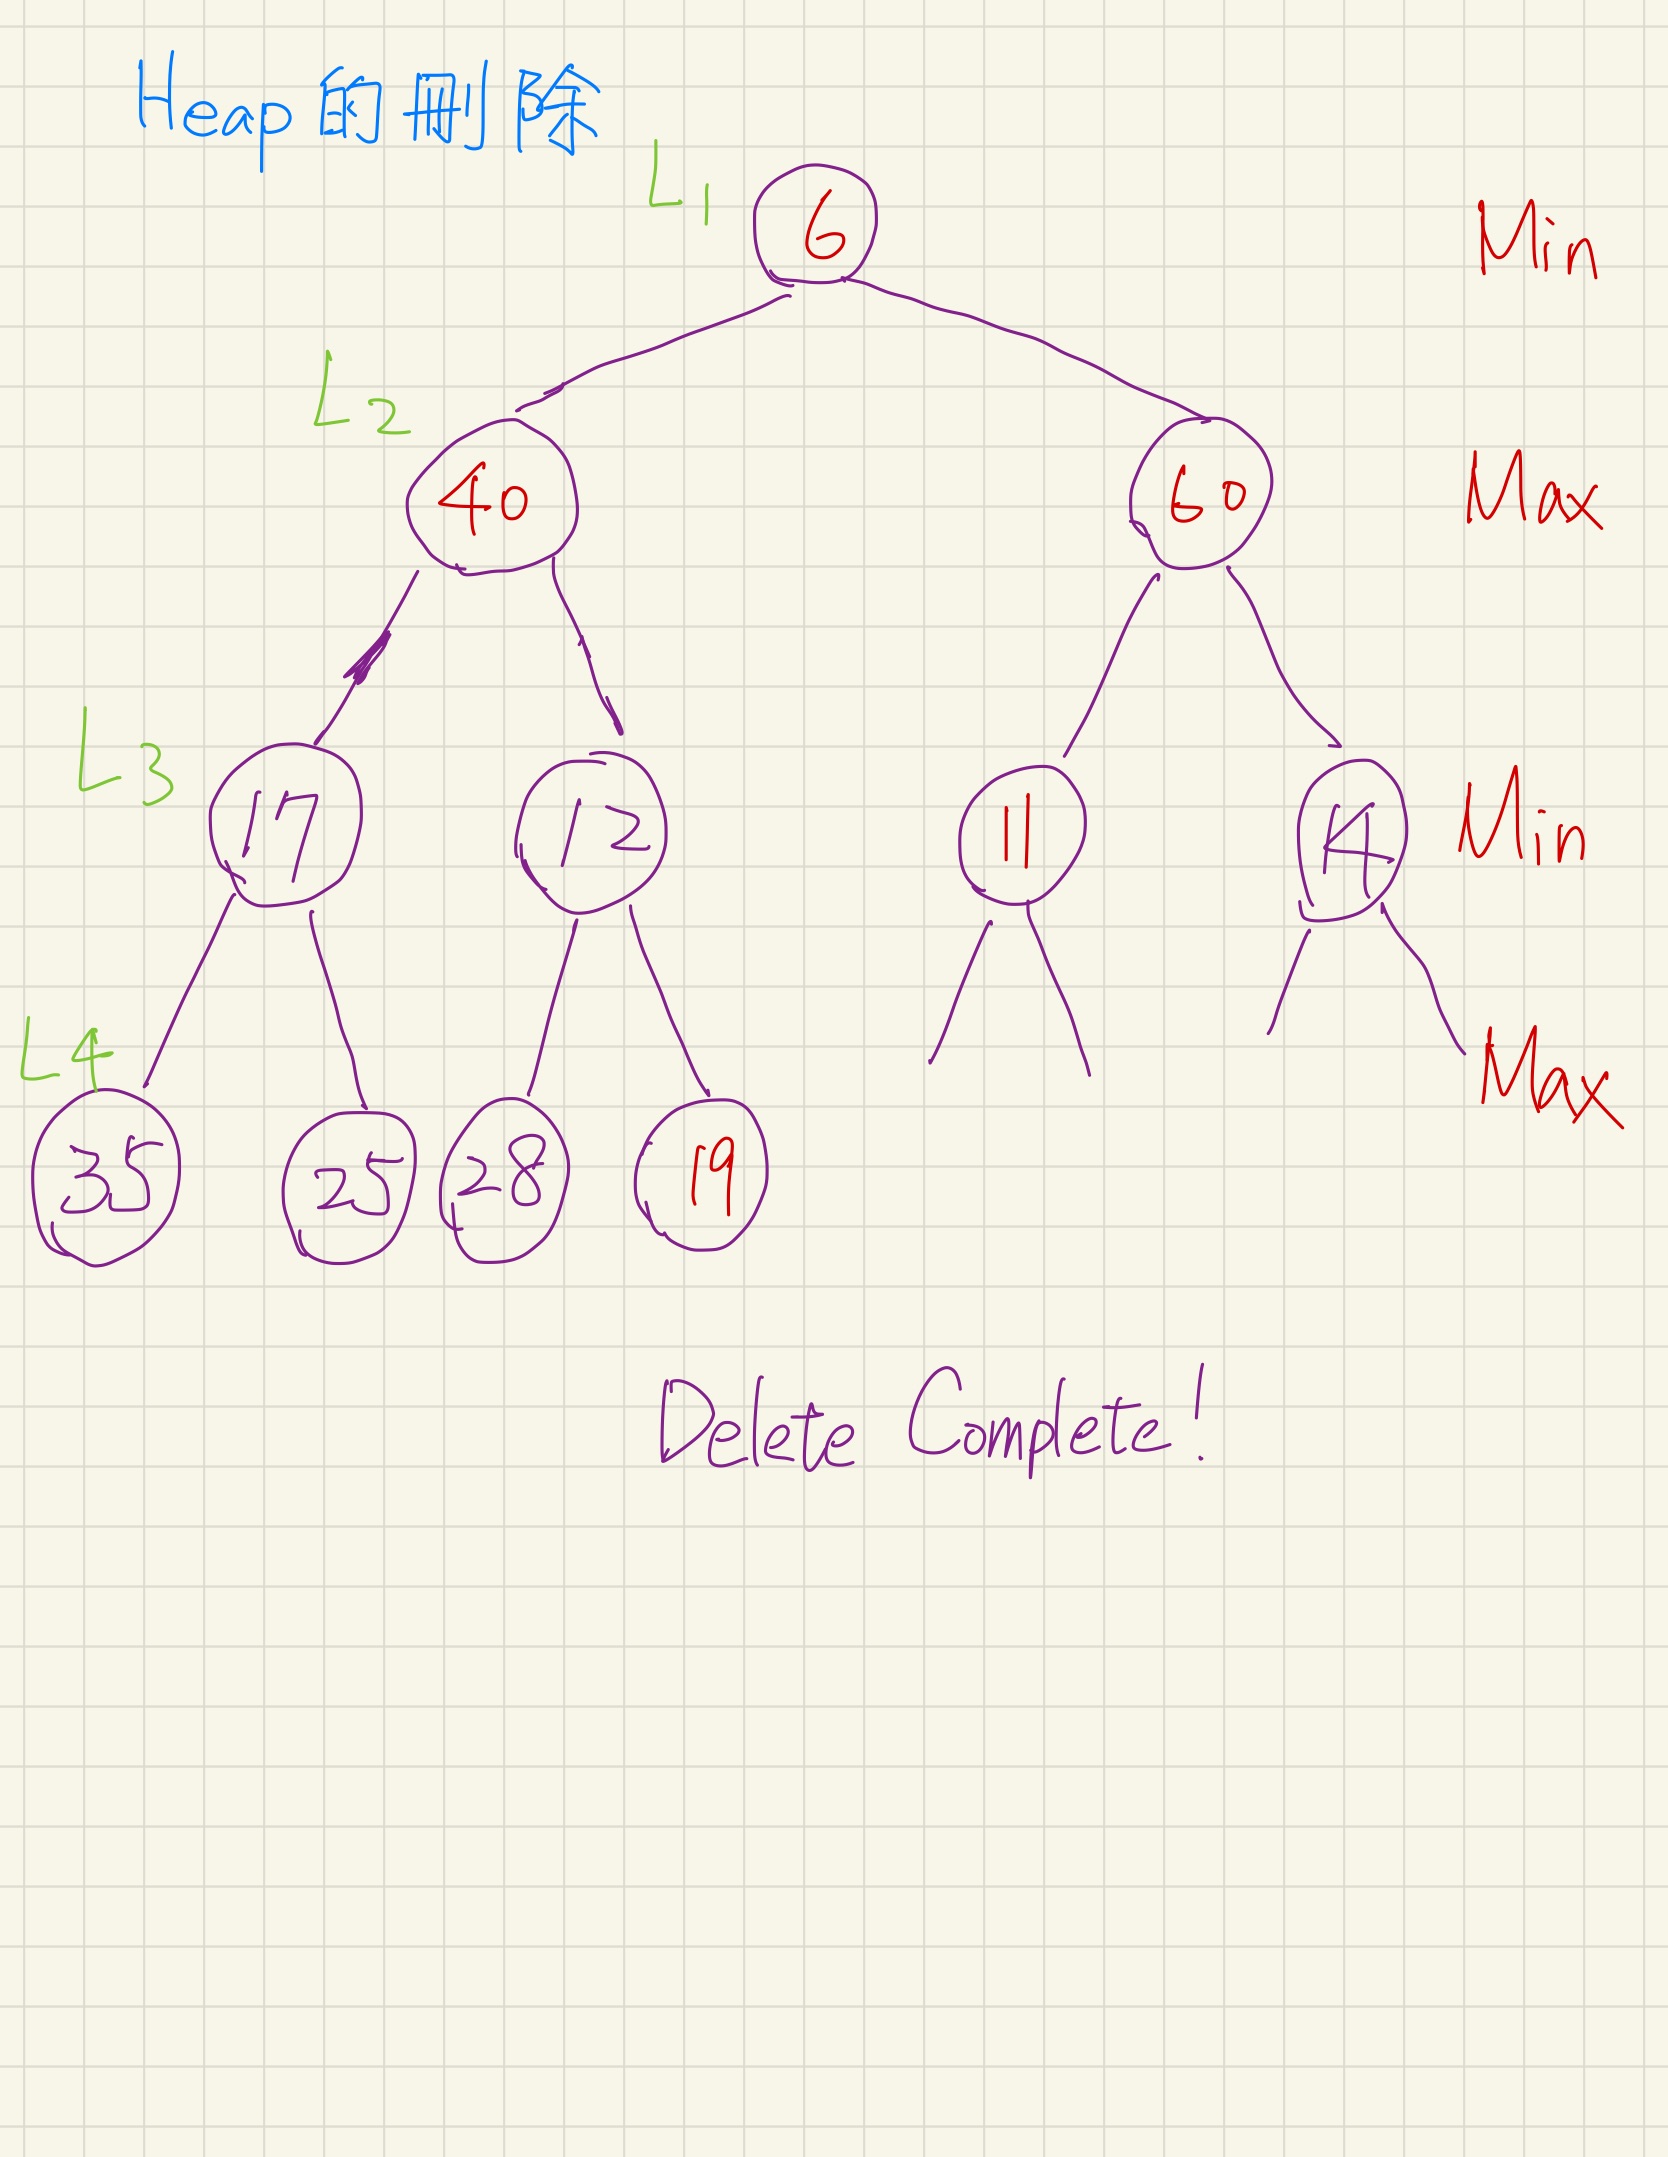 Heap的刪除
L1
6
Min
L2
40
60
Max
L3
17
12
11
14
Min
L4
35
25
28
19
Max
Delete Complete!